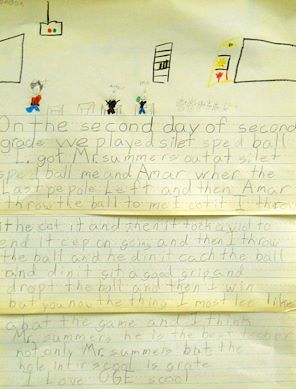 On the second day of second
grade we played silet sped ball
I got Mr. summers out at silet
sped ball me and Amar wher the
Last pepole Left and then Amar
throw the ball to me I cot it I throw
it he cot it and then it took a wiol to
end it cep on going and then I throw
the ball and he din it cach the ball
and din it git a good grip and
dropt the ball and then I win
but you now the thing I most lee like
abat the game and I think
Mr. summers he is the best techer
not only Mr. summers but the
hole intir scool is grate
I Love OGE scool